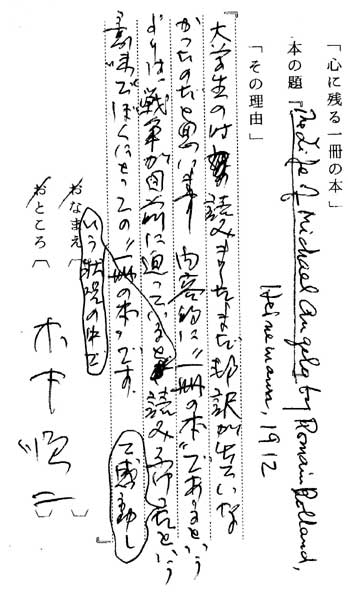 「心に残る一冊の本」
本の題『The Life of Michael Angelo by Romain Rolland,
Heinemann, 1912
「その理由」
『大学生のは読みましたまだ邦訳が出ていな
かったのだと思います 内容的に"一冊の本"であるという
よりは、戦争が目前に迫っている 読みふけったという
意味でぼくにとっての"一冊の本"です
いう状況の中で
て感動し
おなまえ〔木下順二〕
おところ〔 〕